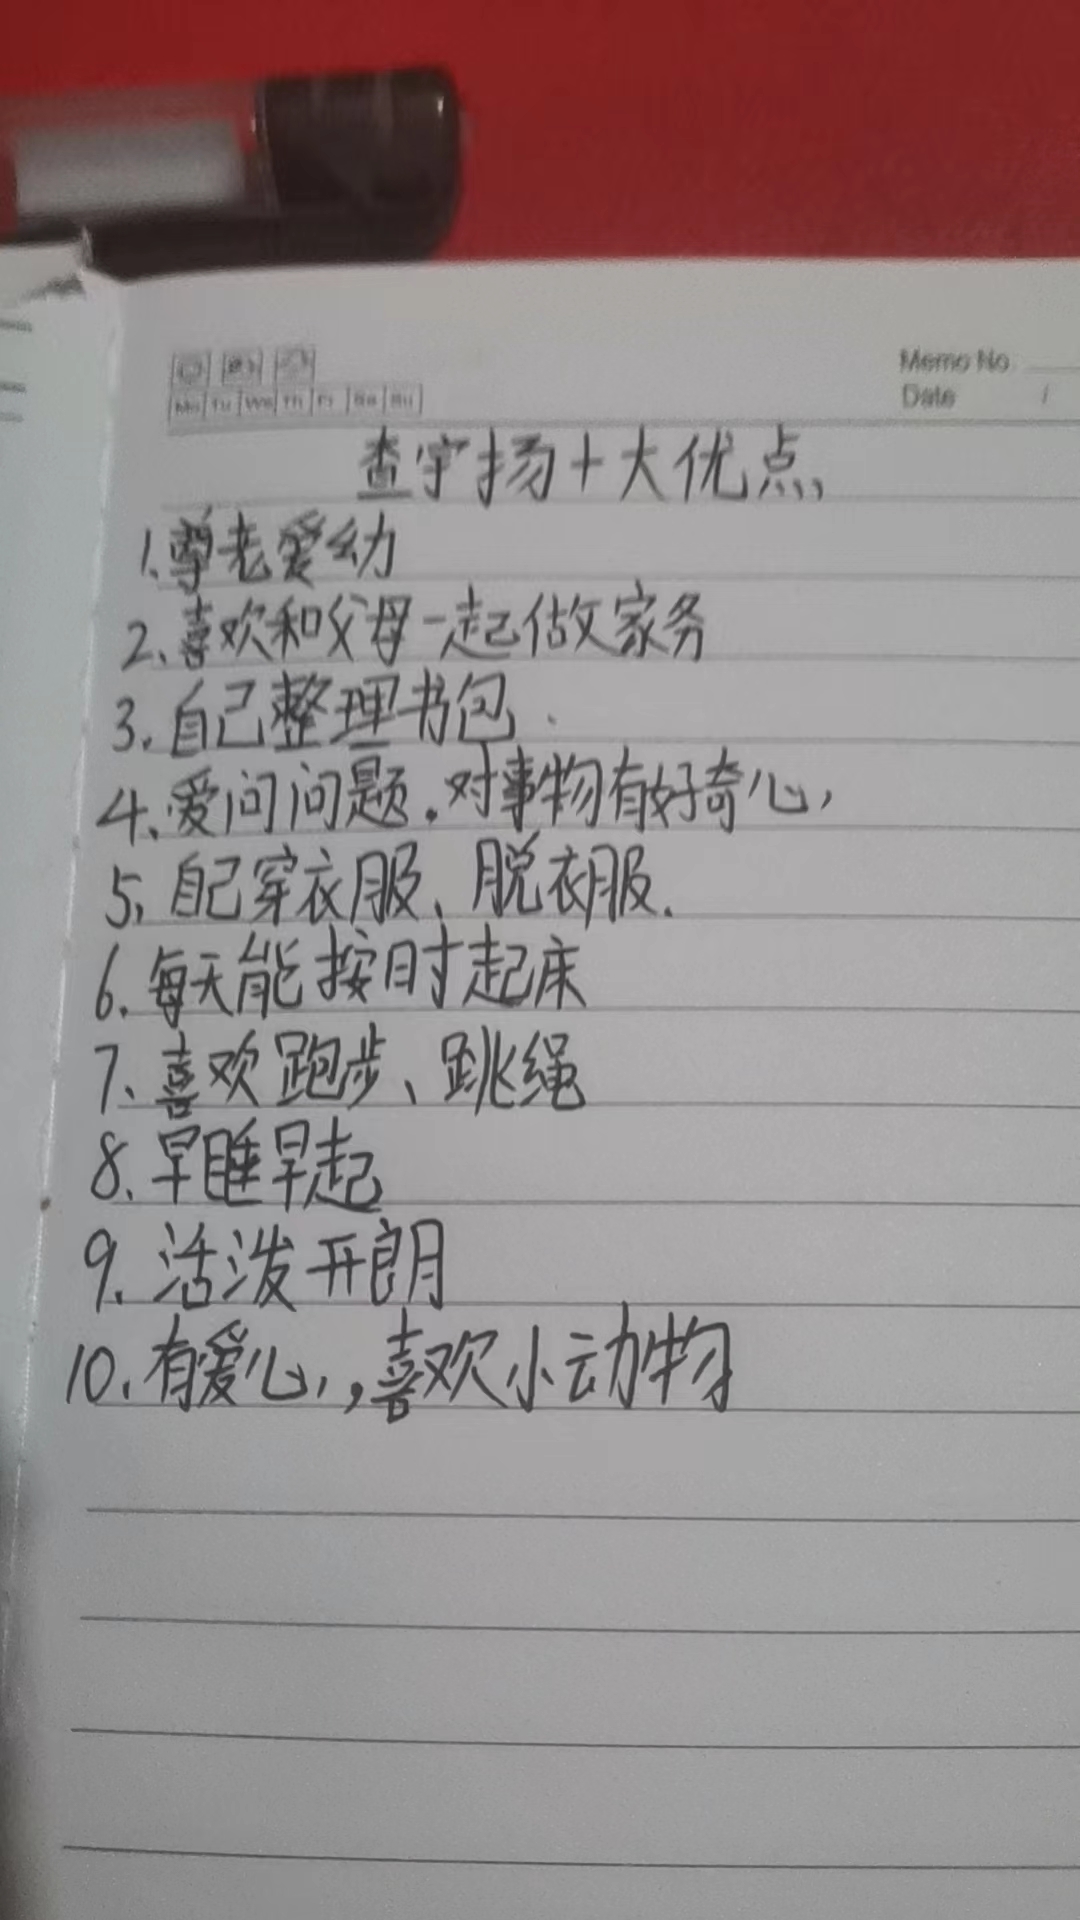 Memo No.
Mo Tu We Th Fr Sa Su
Date /
查宇扬十大优点
1.尊老爱幼
2、喜欢和父母一起做家务
3.自己整理书包.
4、爱问问题.对事物有好奇心,
5,自己穿衣服、脱衣服.
6.每天能按时起床
7、喜欢跑步、跳绳
8.早睡早起
9.活泼开朗
10.有爱心,,喜欢小动物